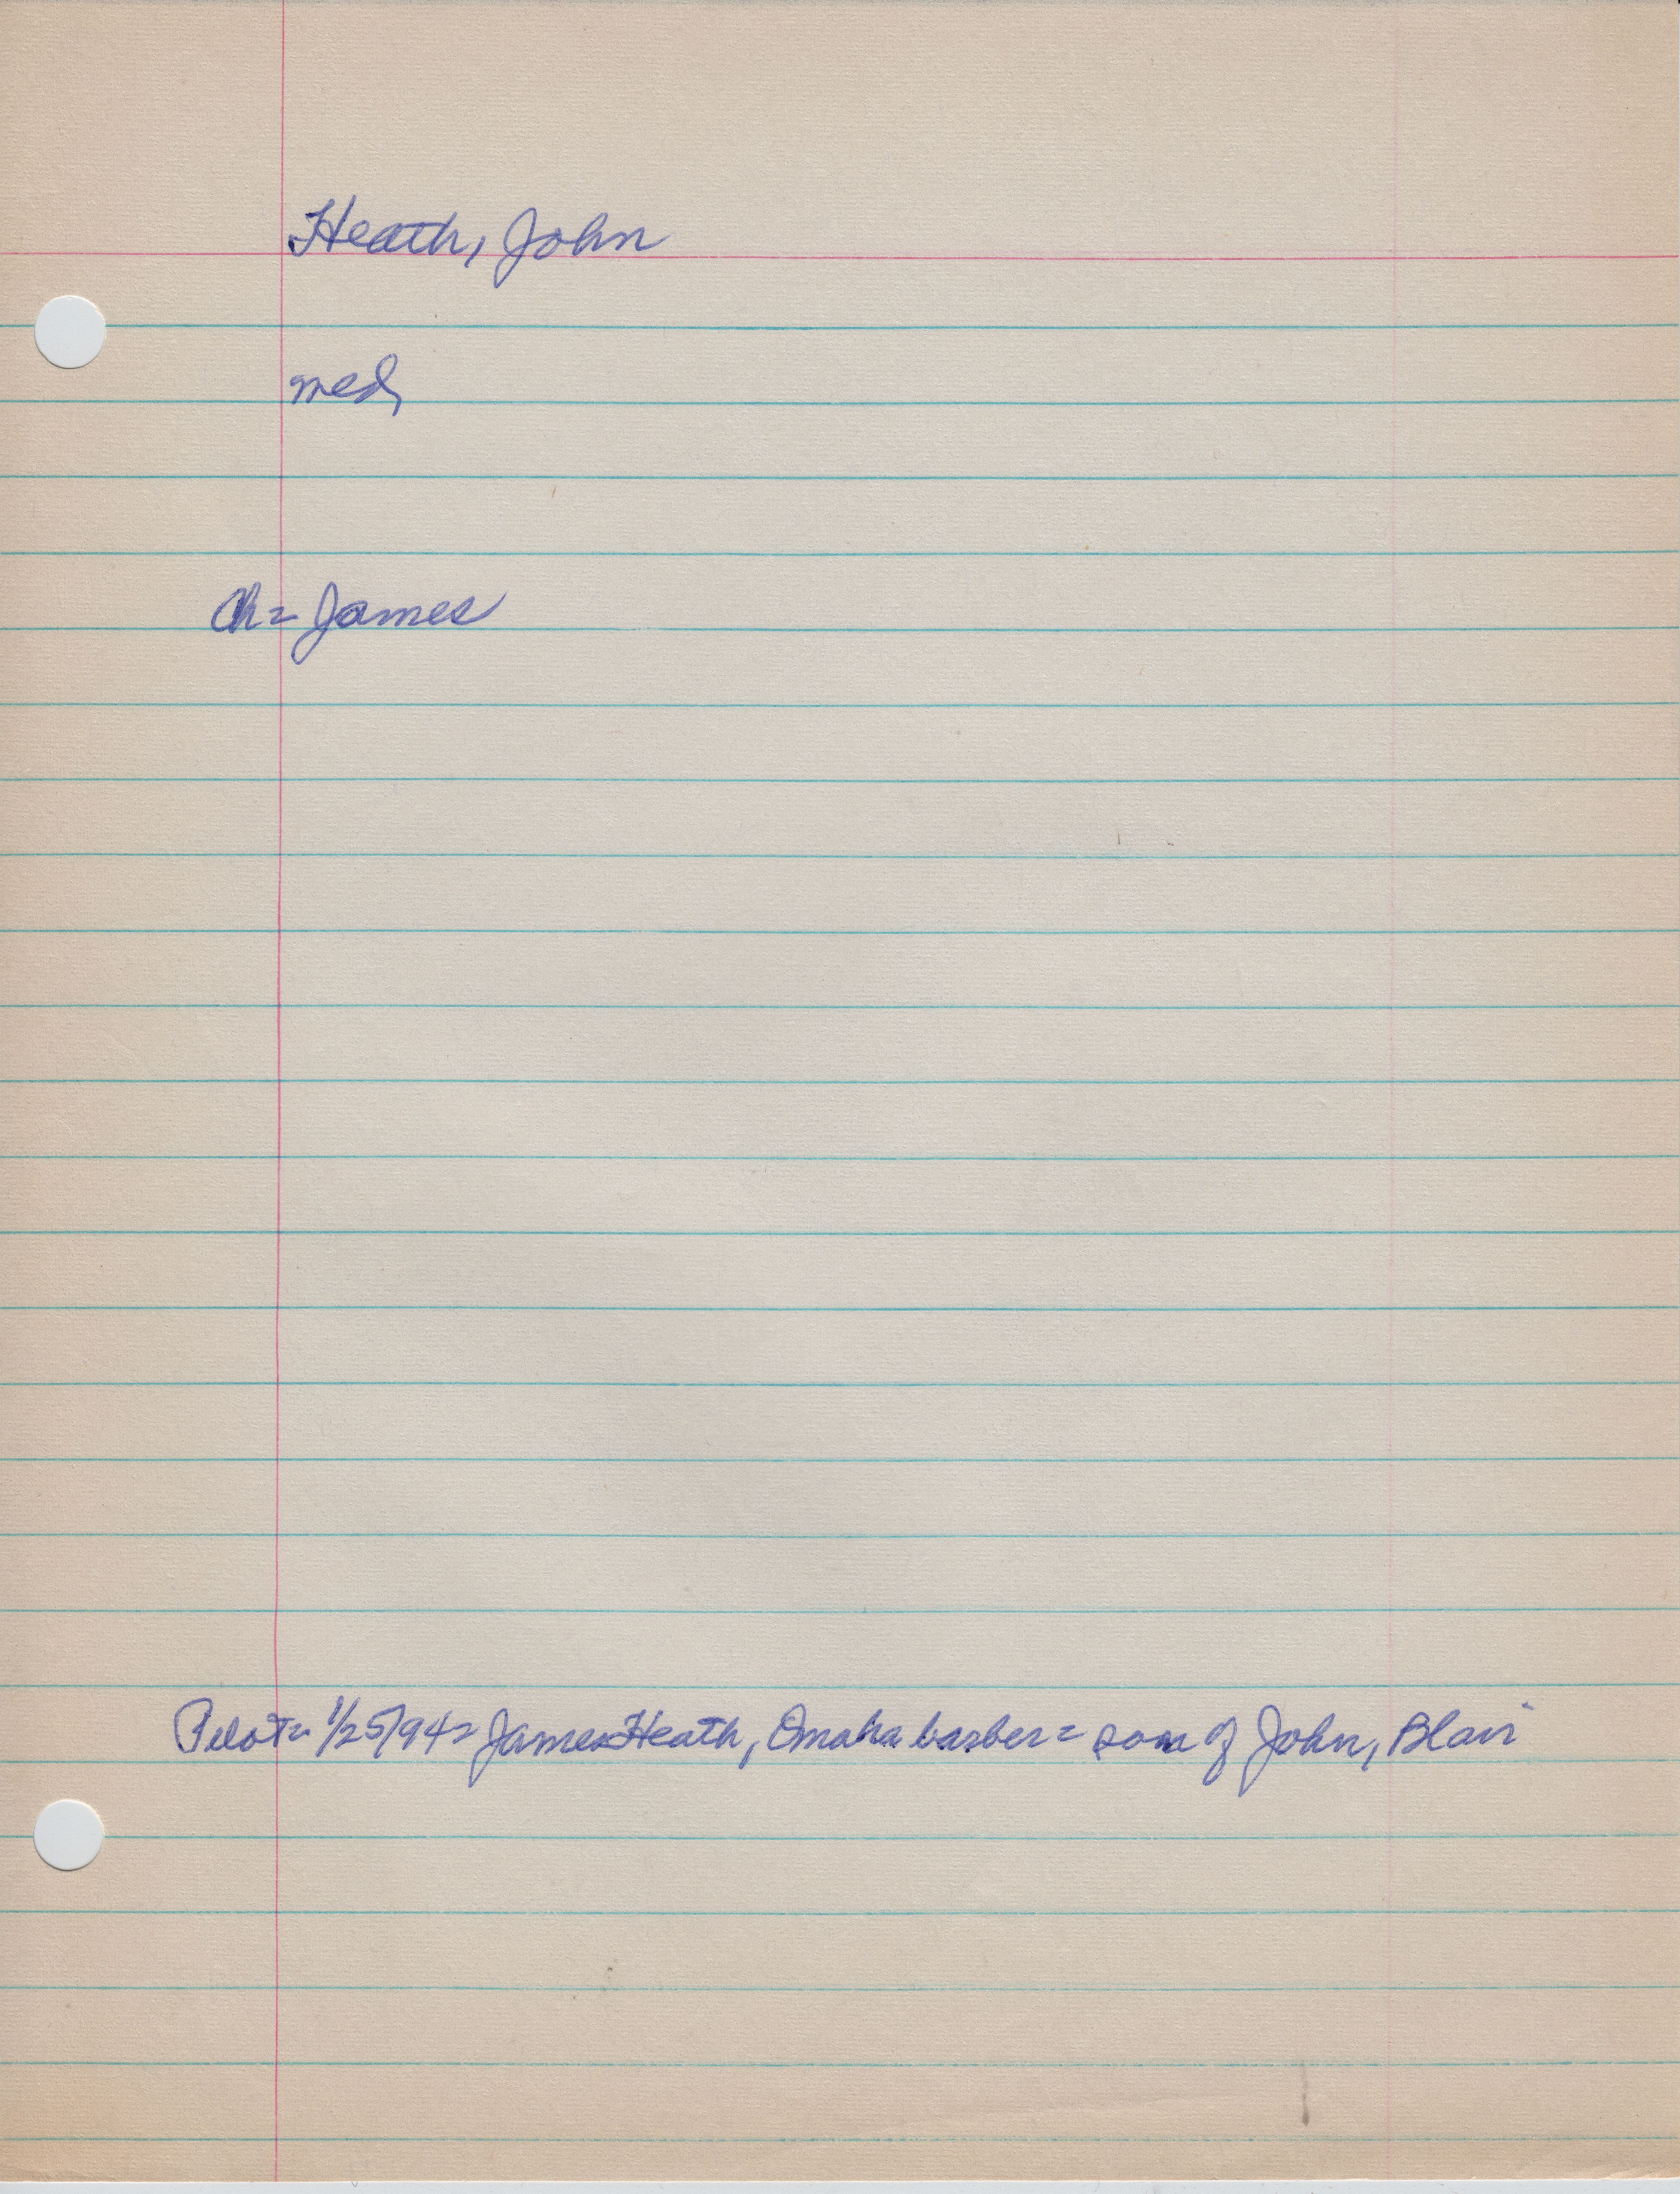 Heath, John
med,
Ch = James
Pilot = 1/25/94 = James Heath, Omaha barber = son of John, Blair